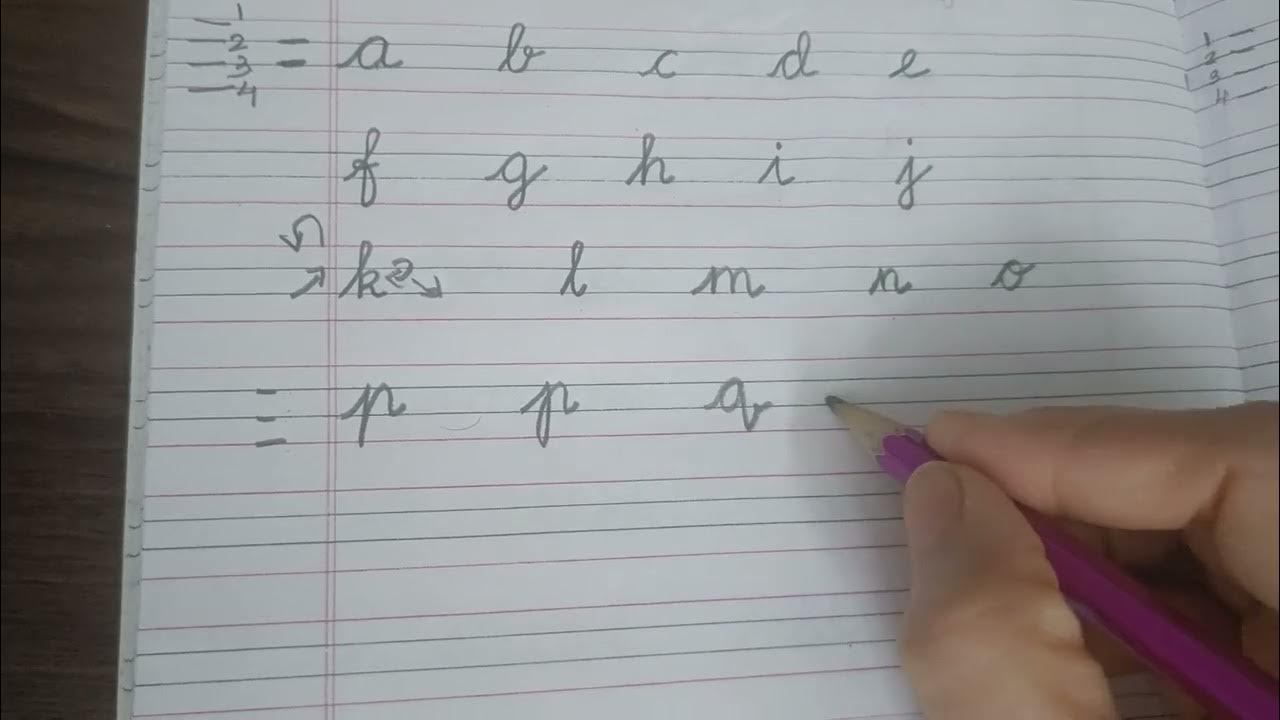 1
2 = a b c d e
3
4
f g h i j
k l m n o
p p q
1
2
3
4